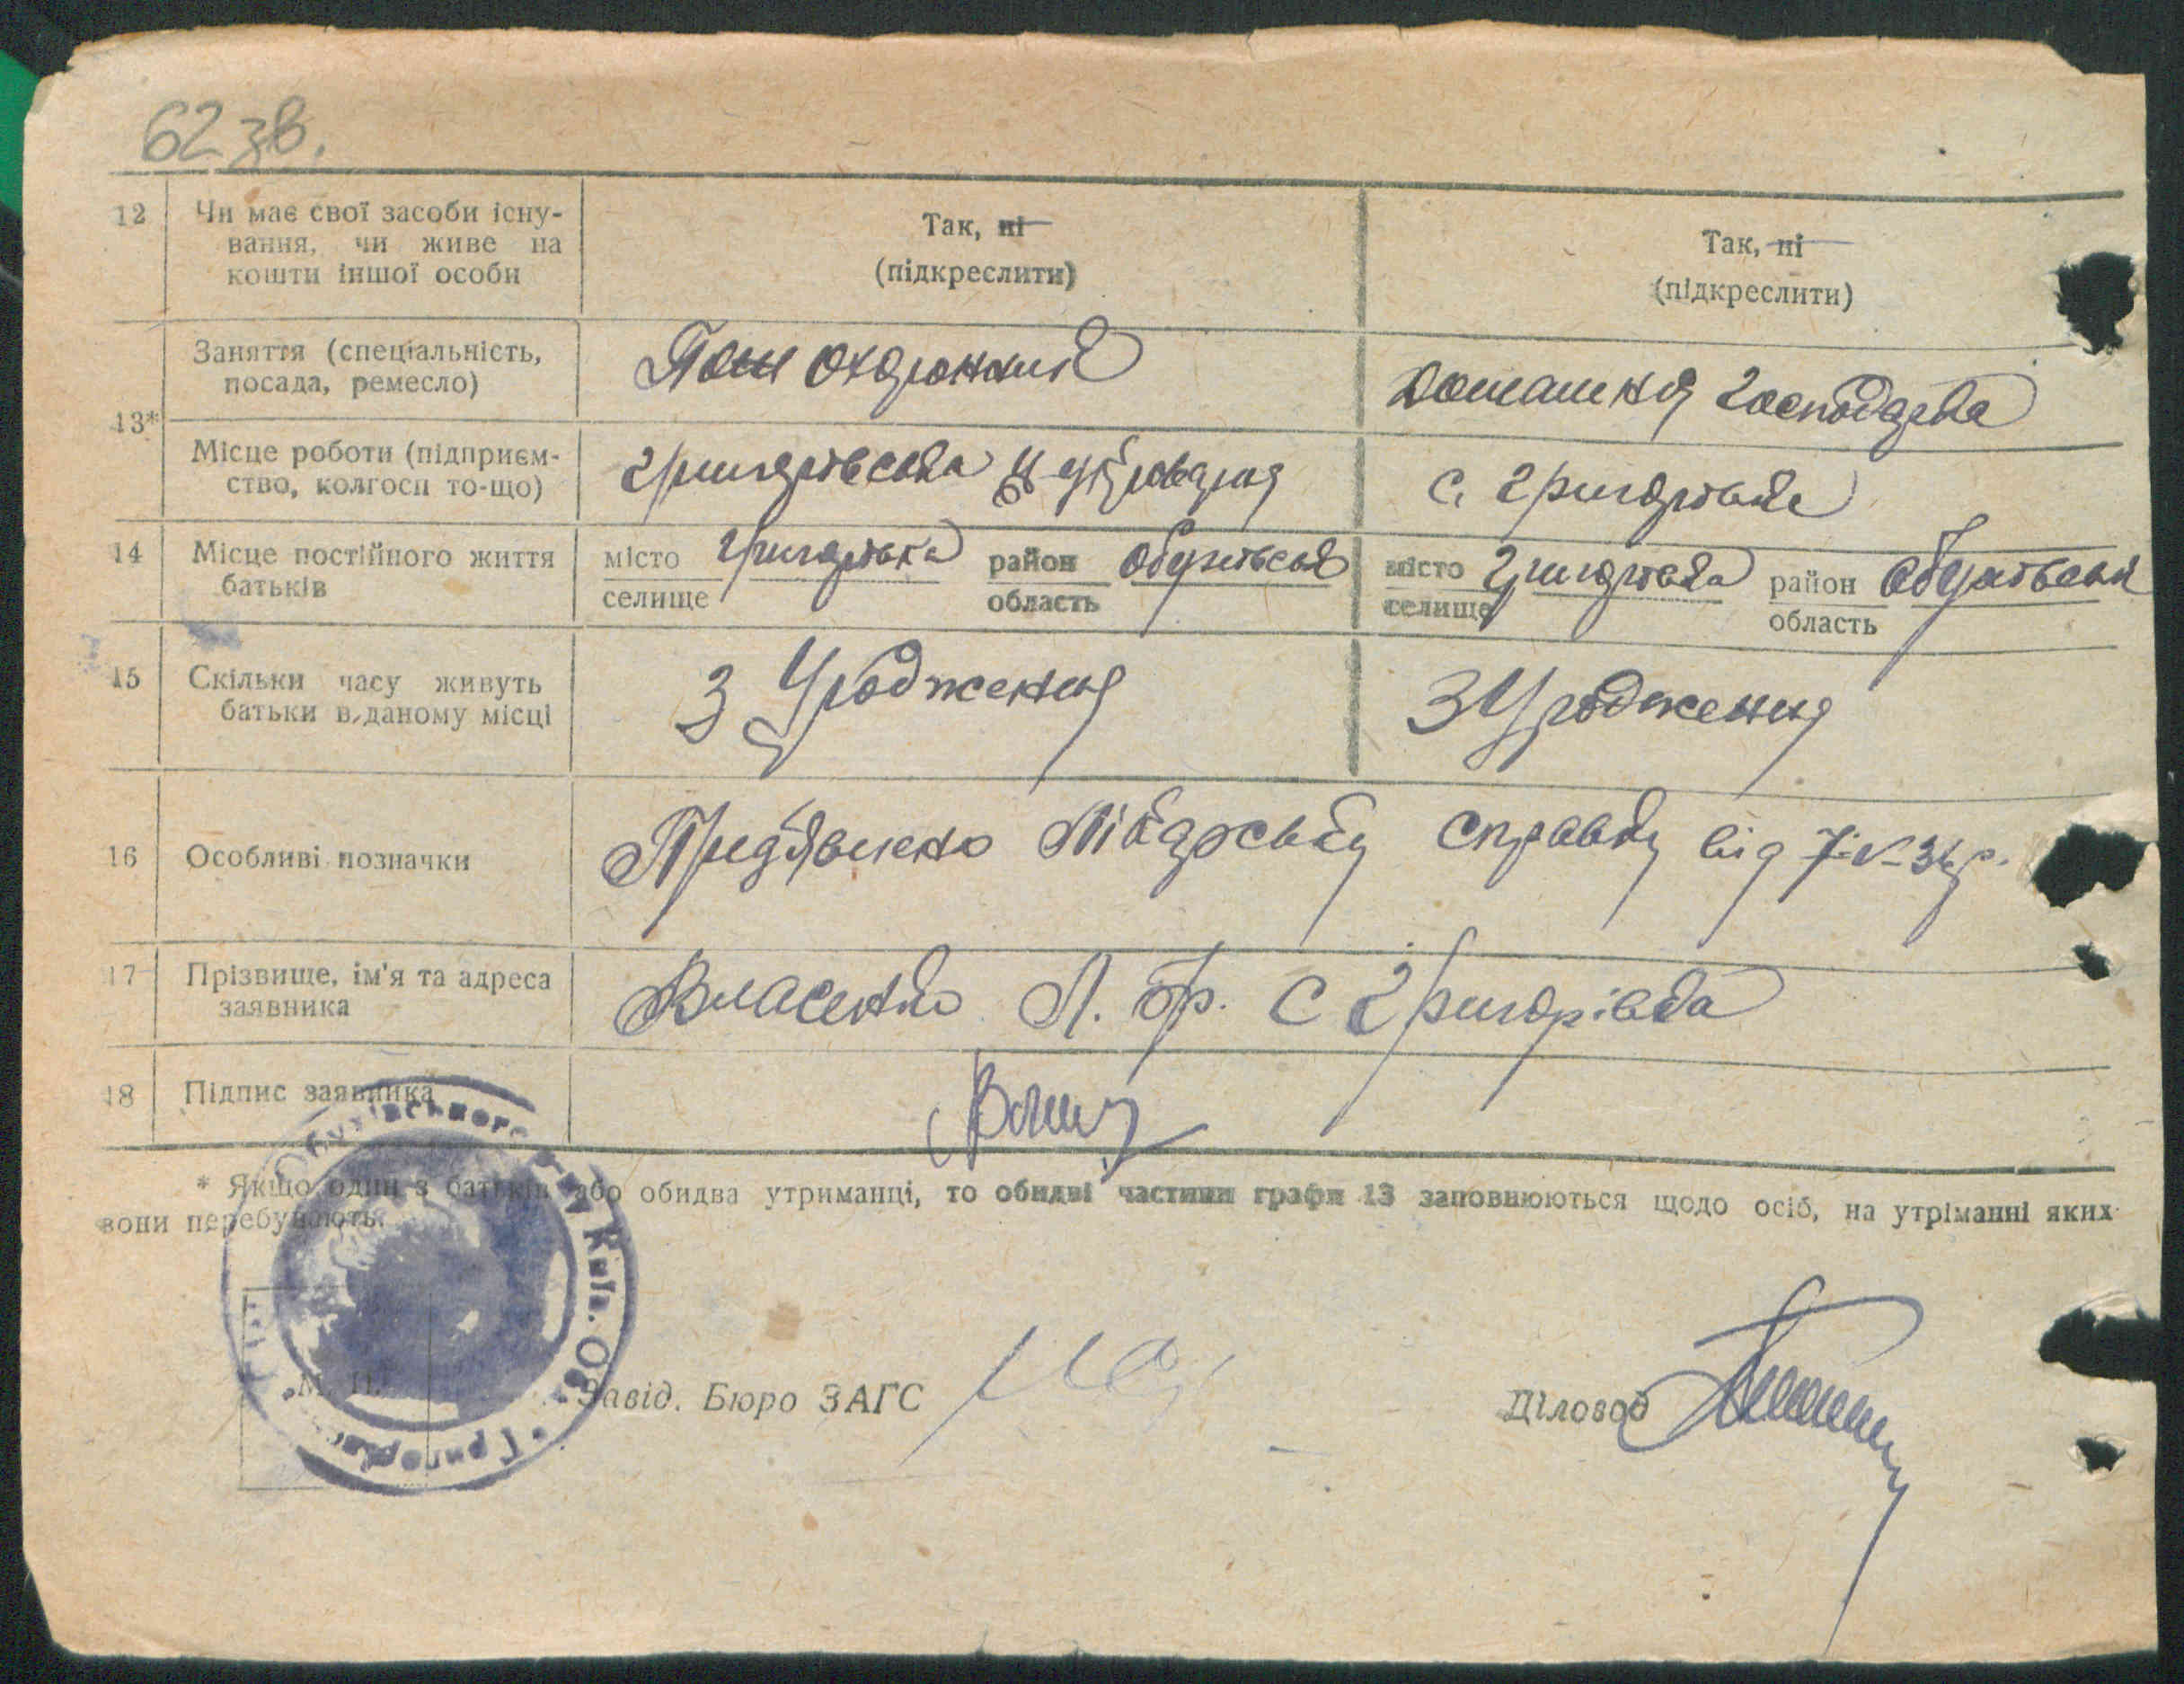 62 зв.
12 Чи має свої засоби існу-
вання, чи живе на
кошти іншої особи
Так, ні
(підкреслити)
Так, ні
(підкреслити)
13*
Заняття (спеціальність,
посада, ремесло)
Пож охоронник
Домашня господарка
Місце роботи (підприєм-
ство, колгосп то-що)
Григорівська
с. Григорівка
14 Місце постійного життя
батьків
місто Григорівка район Обухівськ
селище область
місто Григорівка район Обухівськ
селище область
15 Скільки часу живуть
батьки в даному місці
З Уродження
З Уродження
16 Особливі позначки
Предявлено Лікарську справку від 7-V-36р.
17 Прізвище, ім'я та адреса
заявника
Власенко Л. Гр. С Григорівка
18 Підпис заявника
* Якщо один з батьків або обидва утриманці, то обидві частини графи 13 заповнюються щодо осіб, на утріманні яких
вони перебувають.
Обухівського р-ну Київ. Об. Григорівс
М. П.
Завід. Бюро ЗАГС
Діловод